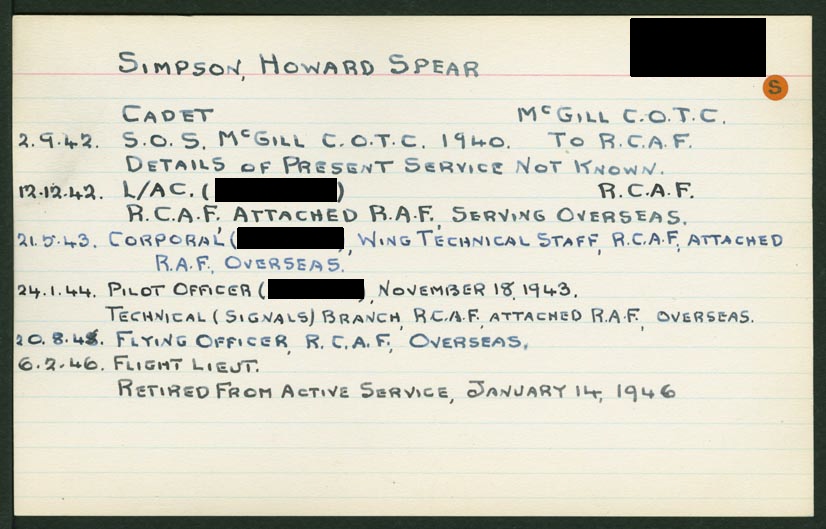 SIMPSON, HOWARD SPEAR
S
CADET McGILL C.O.T.C.
2.9.42. S.O.S. McGILL C.O.T.C. 1940. TO R.C.A.F.
DETAILS OF PRESENT SERVICE NOT KNOWN.
12.12.42. L/AC. ( ) R.C.A.F.
R.C.A.F. ATTACHED R.A.F. SERVING OVERSEAS.
21.5.43. CORPORAL ( ), WING TECHNICAL STAFF, R.C.A.F. ATTACHED
R.A.F. OVERSEAS.
24.1.44. PILOT OFFICER ( ), NOVEMBER 18, 1943.
TECHNICAL (SIGNALS) BRANCH, R.C.A.F. ATTACHED R.A.F. OVERSEAS.
FLYING OFFICER, R.C.A.F. OVERSEAS.
6.2.46. FLIGHT LIEUT.
RETIRED FROM ACTIVE SERVICE, JANUARY 14, 1946